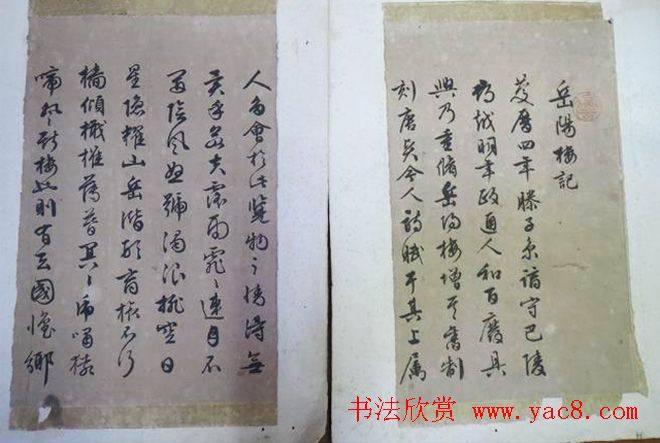 岳陽樓記
慶曆四年滕子京謫守巴陵
郡越明年政通人和百廢具
興乃重脩岳陽樓增其舊制
刻唐賢今人詩賦于其上屬
人多會於此覽物之情得無
異乎若夫霪雨霏〻連月不
開陰風怒號濁浪排空日
星隱耀山岳潛形商旅不行
檣傾楫摧薄暮冥〻虎嘯猿
啼登斯樓也則有去國懷鄉
书法欣赏 www.yac8.com